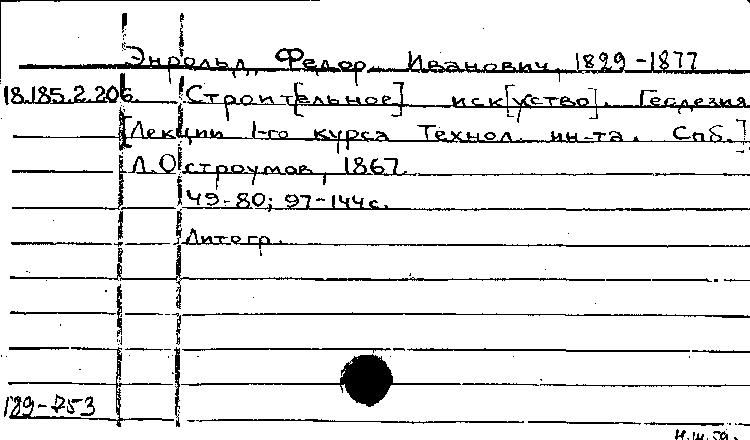 Энрольд, Федор Иванович, 1829-1877
18.185.2.206 Строит[ельное] иск[усство]. Геодезия
[Лекции 1-го курса Технол. ин-та. Спб.]
Л. Остроумов, 1867.
49-80; 97-144 с.
Литогр.
189-753